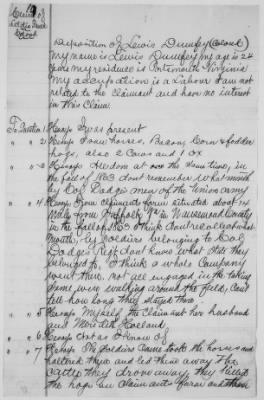 Deposition of Lewis Dumfey (Cold)
My name is Lewis Dumfey my age is 24
years my residence is Portsmouth Virginia
My occupation is a Labour I am not
related to the claimant and have no interest
in this Claim.
To Question 1 Resp I was present
" " 2 Resp Some horses, Bacon, Corn & fodder
hogs, also 2 Cows and 1 ox
" " 3 Resp at one the same time, in
the fall of 1863 dont remember what month
by Col Dodge's men of the Union army
" " 4 Resp from Claimants farm situated about 14
Miles from Suffolk Va in County
in the fall of 1863 I think dont recollect what
month, by Soldiers belonging to Col
Dodge's Regt dont know what State they
belonged to, I think a whole Company
went there, not all engaged in the taking
some were walking around the field, Can't
tell how long they stayed there
" " 5 Resp Myself, the Claimant her husband
and Holland
" " 6 Resp Not as I know of
" " 7 Resp The Soldiers Came took the horses and
haltered them and led them away The
Cattle they drove away, they killed
the hogs on Claimants farm and